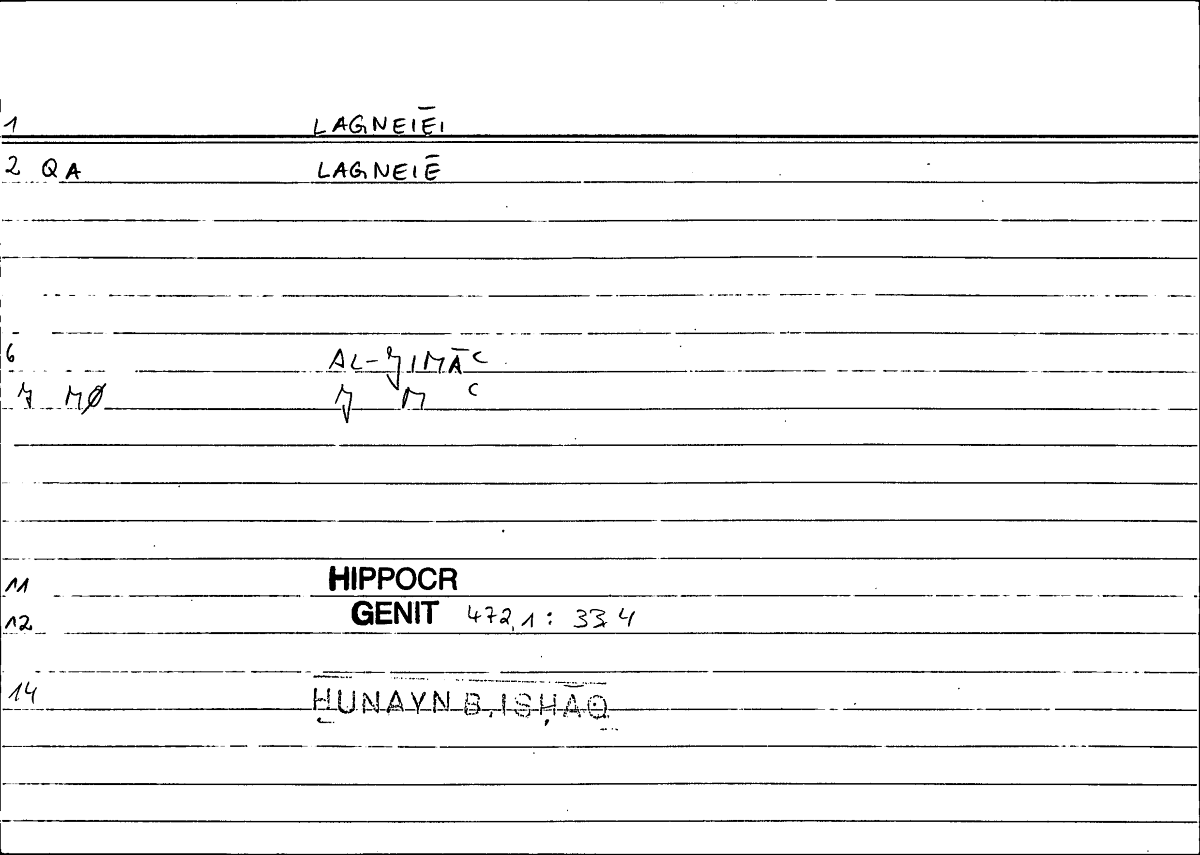 1 LAGNEIĒI
2 QA LAGNEIĒ
6 AL-ǦIMĀʿ
MØ M ʿ
11 HIPPOCR
12 GENIT 472,1 : 33,4
14 ḤUNAYN B. ISḤĀQ